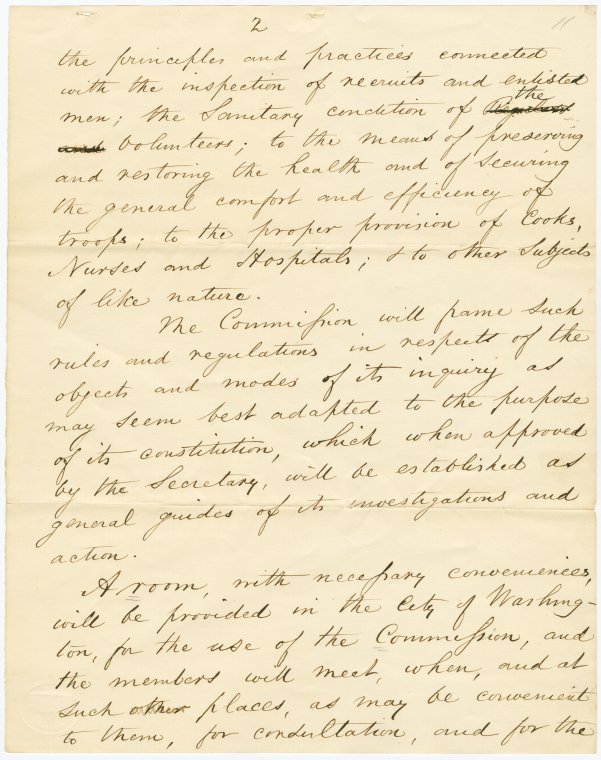 2
11
the principles and practices connected
with the inspection of recruits and enlisted
men; the Sanitary condition of Regulars the
and Volunteers; to the means of preserving
and restoring the health and of securing
the general comfort and efficiency of
troops; to the proper provision of Cooks,
Nurses and Hospitals; & to other Subjects
of like nature.
The Commission will frame such
rules and regulations in respects of the
objects and modes of its inquiry as
may seem best adapted to the purpose
of its constitution, which when approved
by the Secretary, will be established as
general guides of its investigations and
action.
A room, with necessary conveniences,
will be provided in the City of Washing-
ton, for the use of the Commission, and
the members will meet, when, and at
such other places, as may be convenient
to them, for consultation, and for the